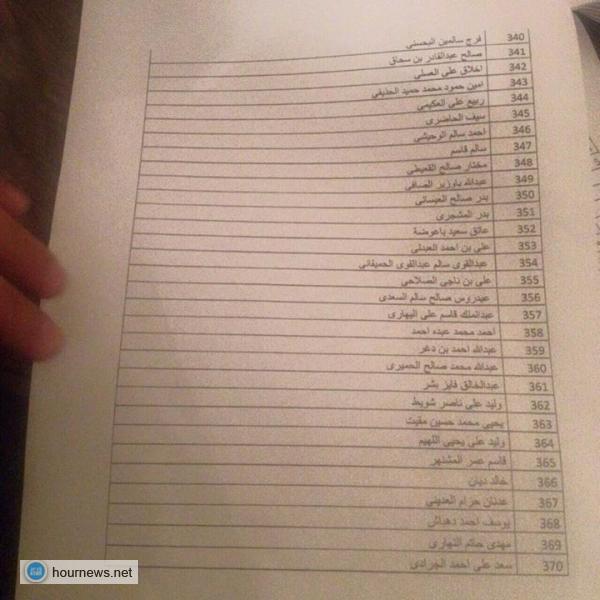 340 فرج سالمين البحسني
341 صالح عبدالقادر بن سحاق
342 اخلاق على الصلى
343 امين حمود محمد حميد الحذيفي
344 ربيع على العكيمي
345 سيف الحاضرى
346 احمد سالم الوحيشى
347 سالم قاسم
348 مختار صالح القعيطى
349 عبدالله باوزير الصافى
350 بدر صالح العيسائى
351 بدر المشجرى
352 عاتق سعيد باعوضة
353 على بن احمد العبدلى
354 عبدالقوى سالم عبدالقوى الحميقانى
355 على بن ناجى الصلاحى
356 عيدروس صالح سالم السعدى
357 عبدالملك قاسم على النهارى
358 احمد محمد عبده احمد
359 عبدالله احمد بن دغر
360 عبدالله محمد صالح الحميرى
361 عبدالخالق فايز بشر
362 وليد على ناصر شويط
363 يحيى محمد حسين مقيت
364 وليد على يحيى اللهيم
365 قاسم عسر المشنهر
366 خالد ديان
367 عدنان حزام العدينى
368 يوسف احمد دهباش
369 مهدى حاتم النهارى
370 سعد على احمد الجرادى
hournews.net